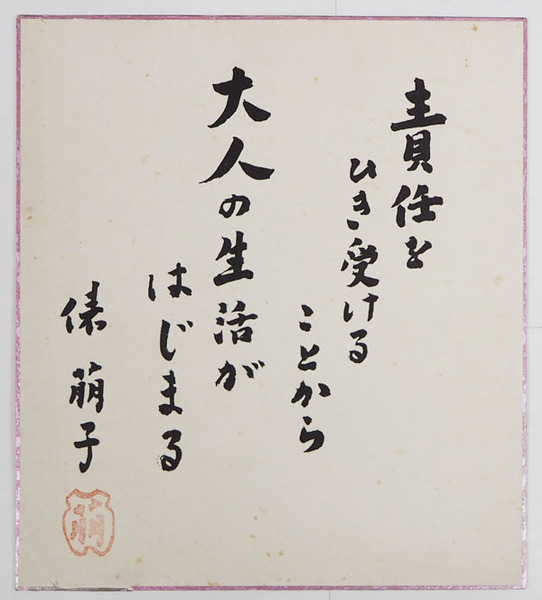 責任を
ひき受ける
ことから
大人の生活が
はじまる
俵萠子
萠